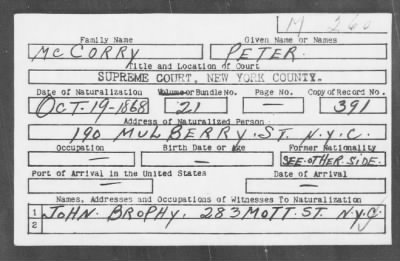 M 260
Family Name Given Name or Names
McCORRY PETER.
Title and Location of Court
SUPREME COURT, NEW YORK COUNTY.
Date of Naturalization Volume or Bundle No. Page No. Copy of Record No.
OCT-19-1868 21 — 391
Address of Naturalized Person
190 MULBERRY. ST. N.Y.C.
Occupation Birth Date or Age Former Nationality
— — SEE-OTHER-SIDE.
Port of Arrival in the United States Date of Arrival
— —
Names, Addresses and Occupations of Witnesses To Naturalization
1 JOHN. BROPHY. 283 MOTT. ST. N.Y.C.
2